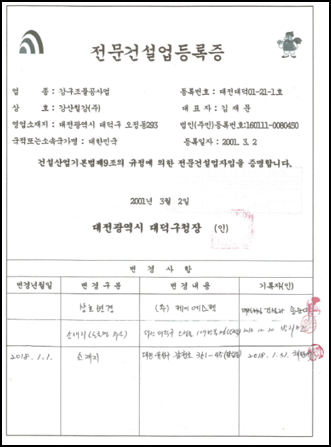 전문건설업등록증
업 종 : 강구조물공사업 등록번호 : 대전대덕01-21-1호
상 호 : 강산철강(주) 대 표 자 : 김재문
영업소재지 : 대전광역시 대덕구 오정동293 법인(주민)등록번호:160111-0080450
국적또는소속국가명 : 대한민국 등록일자 : 2001. 3. 2
건설산업기본법제9조의 규정에 의한 전문건설업자임을 증명합니다.
2001년 3월 2일
대전광역시 대덕구청장 (인)
변 경 사 항
변경년월일 변 경 구 분 변 경 내 용 기록자(인)
상호변경 (주) 케이에스텍
소재지
2018. 1. 1. 소재지 2018. 1. 31.